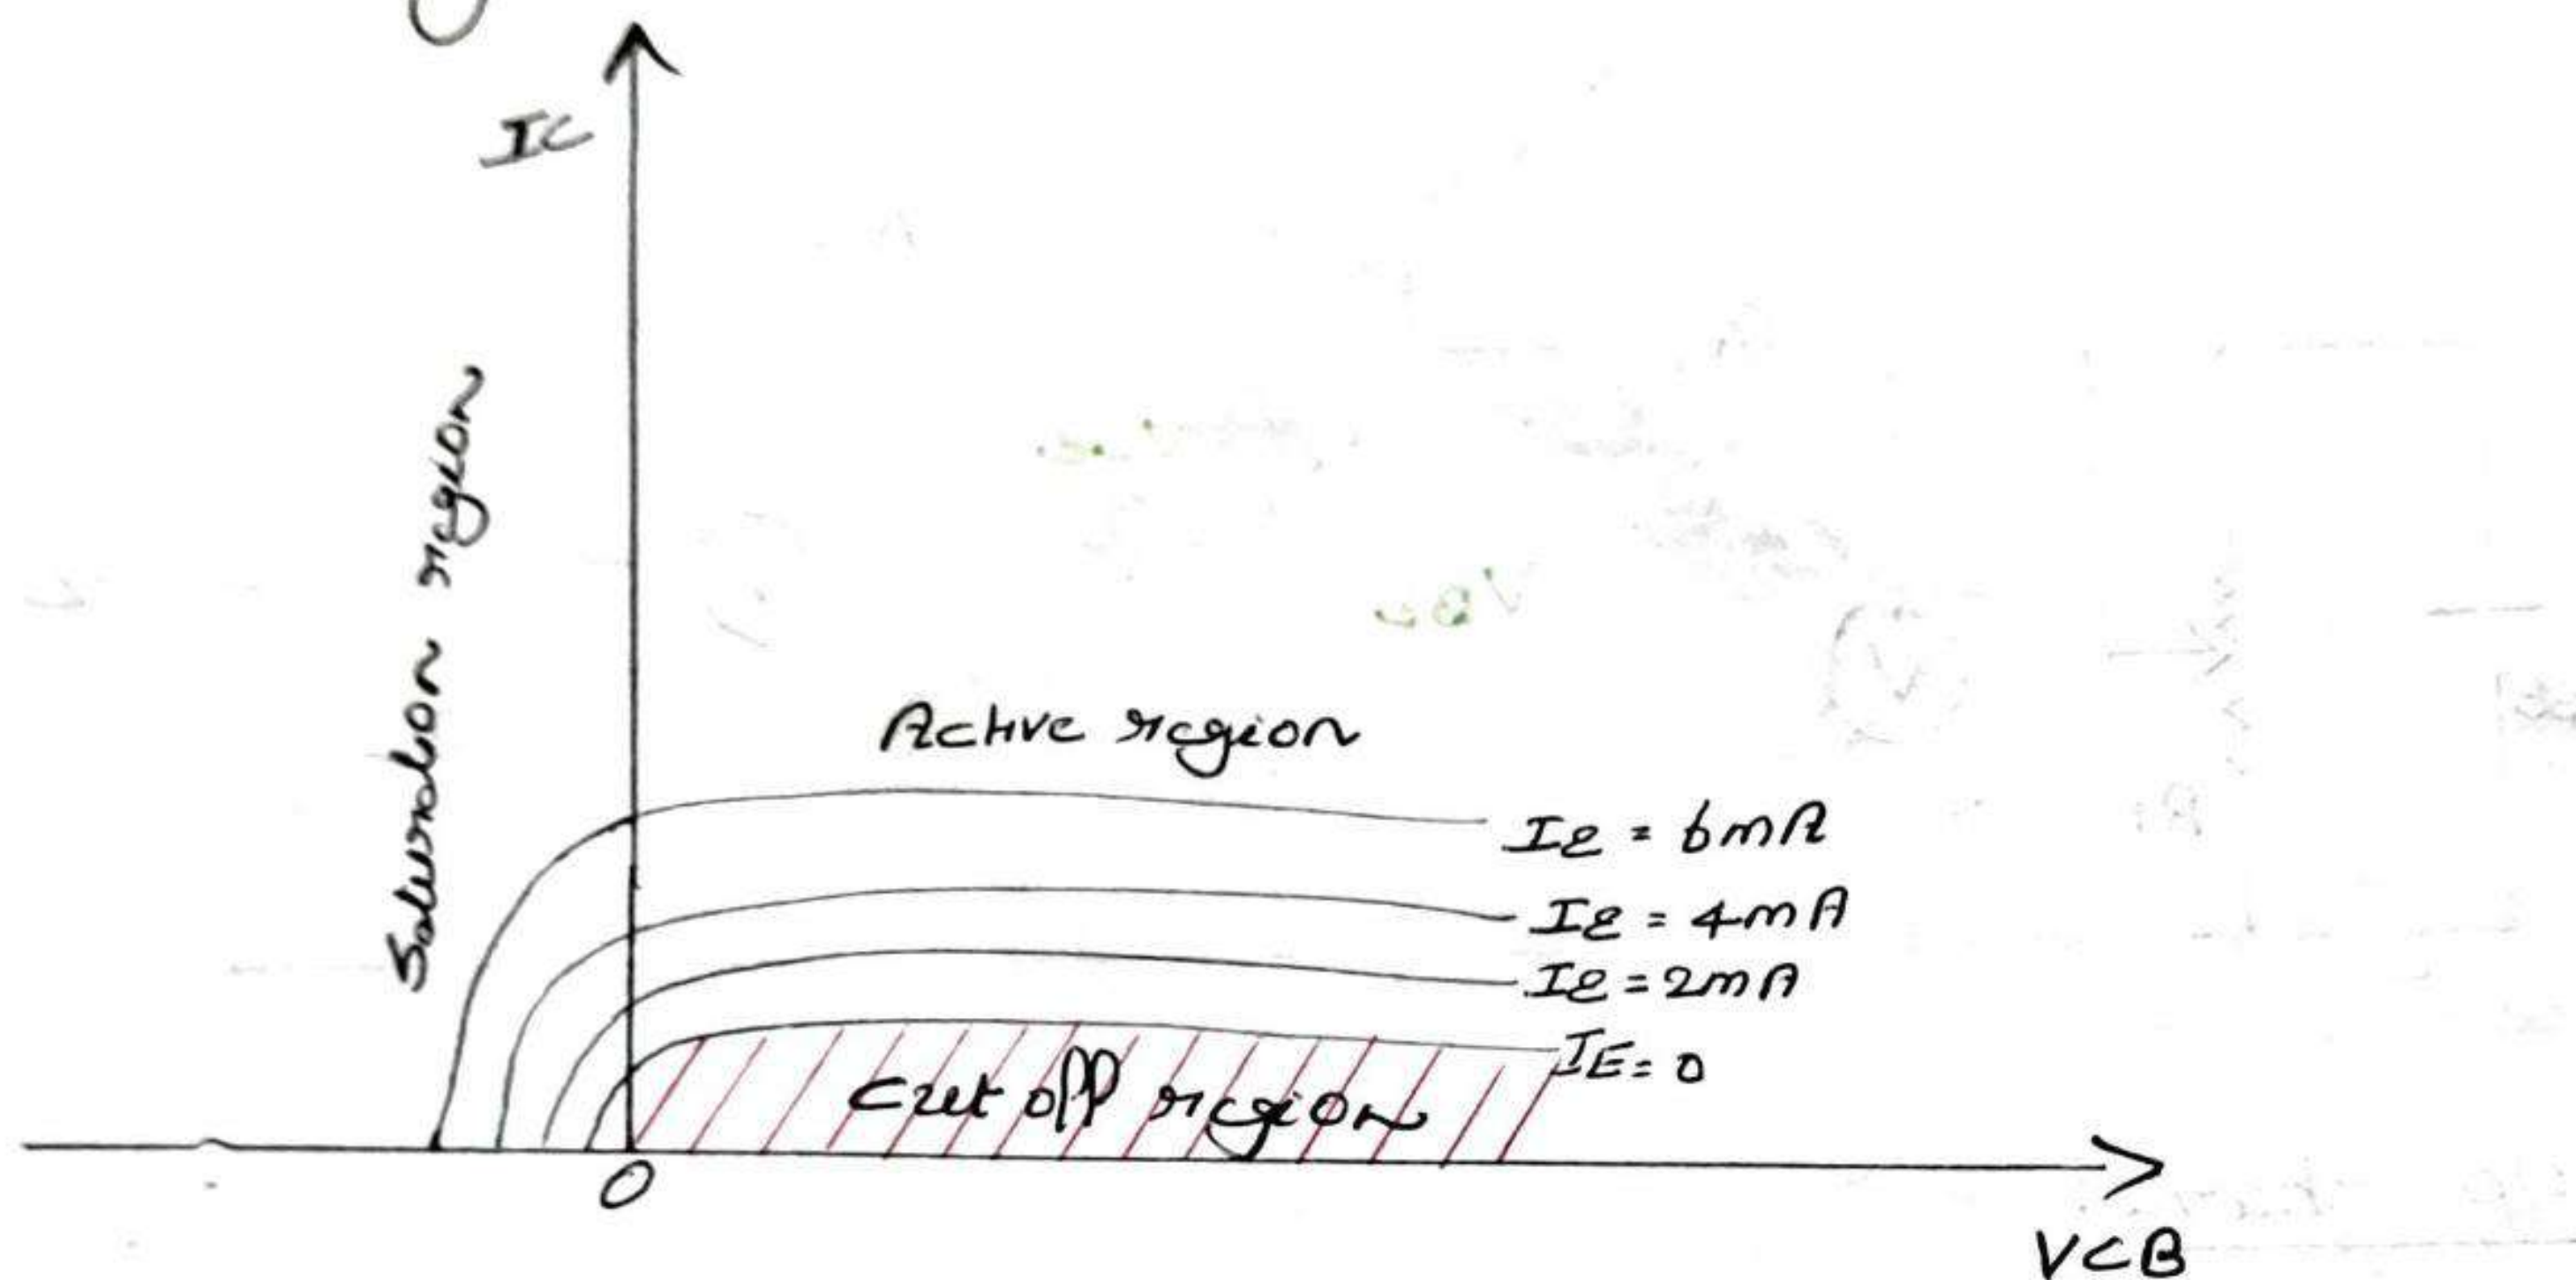 IC
Saturation region
Active region
IE = 6mA
IE = 4mA
IE = 2mA
IE = 0
Cut off region
0
VCB